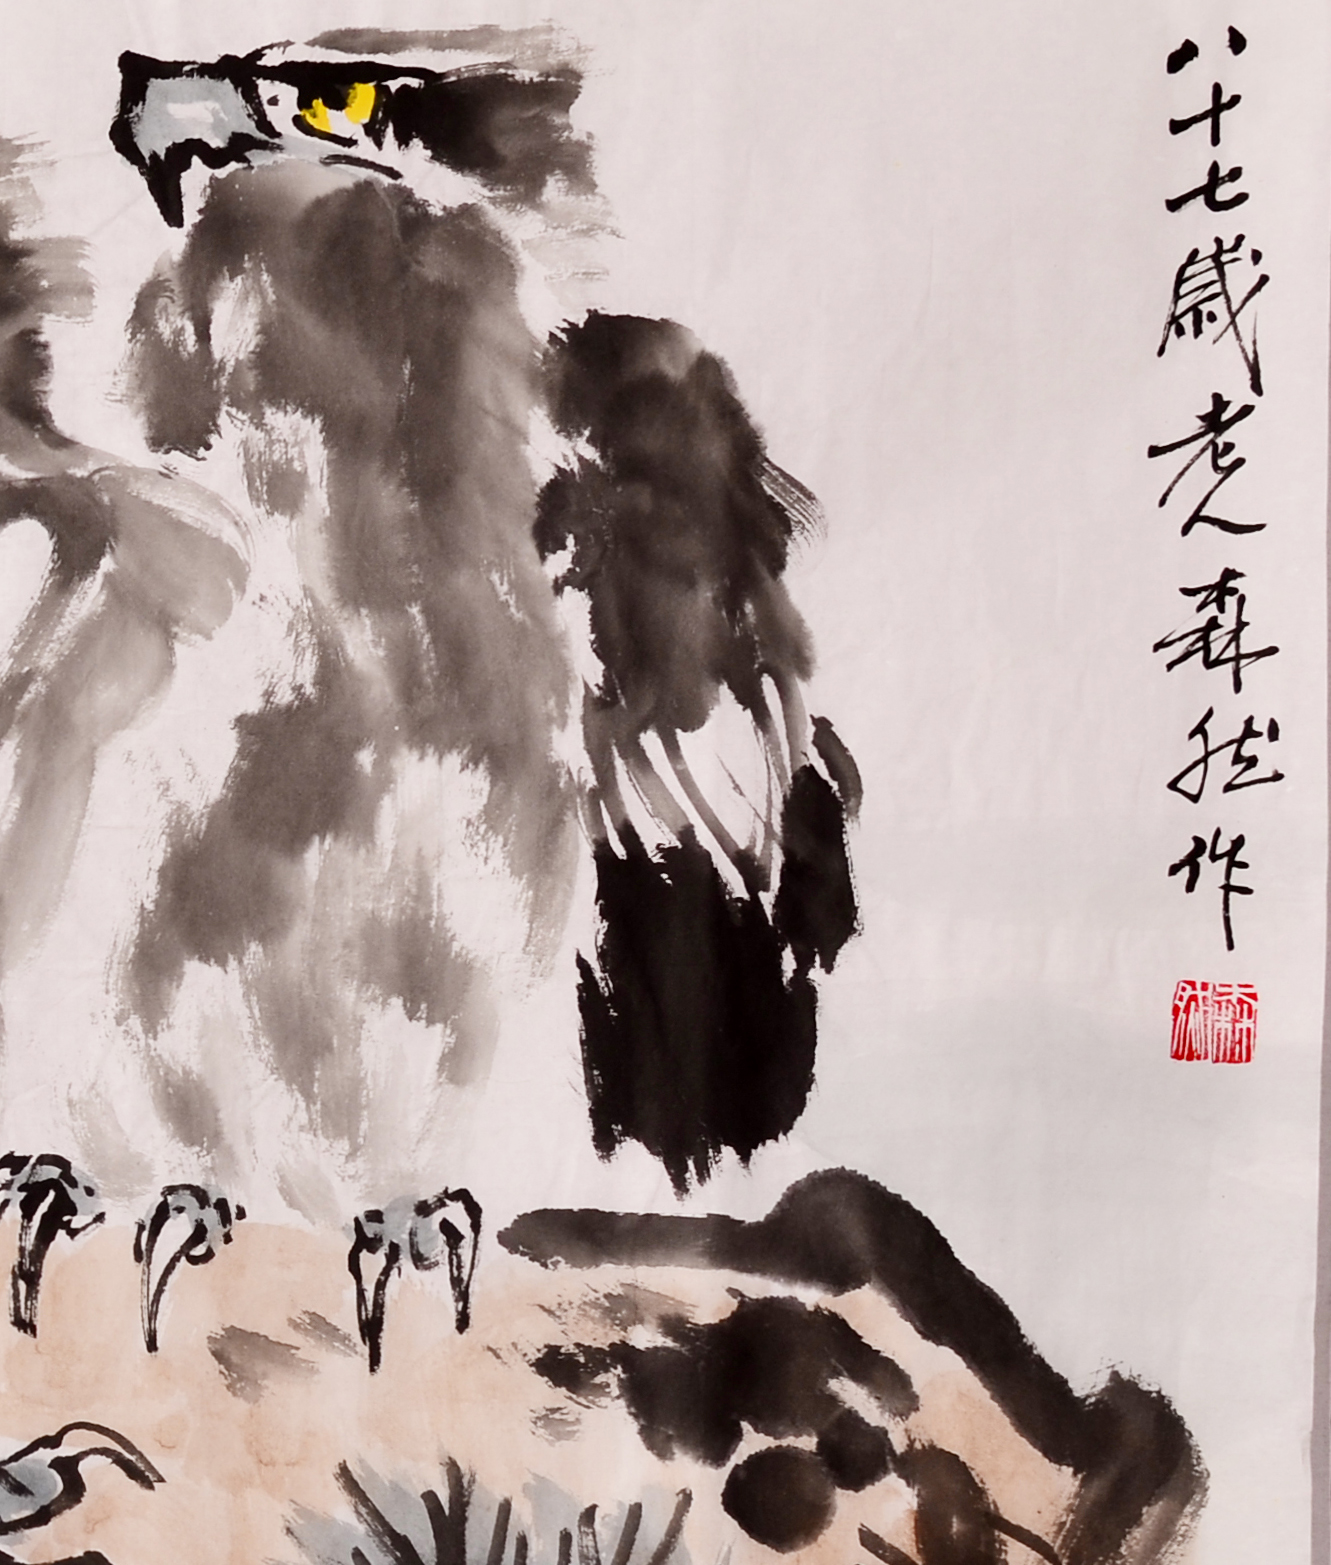 八十七歲老人森然作
森然